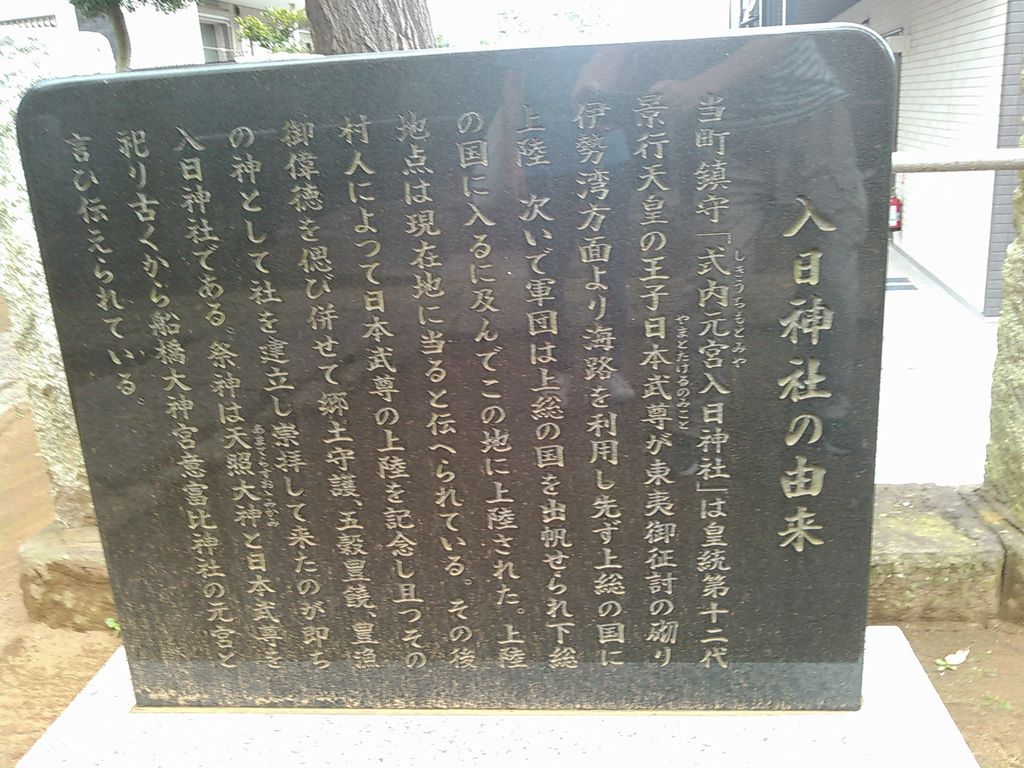 入日神社の由来
当町鎮守「式内元宮入日神社」は皇統第十二代
しきうちもとみや
景行天皇の王子日本武尊が東夷御征討の砌り
やまとたけるのみこと
伊勢湾方面より海路を利用し先ず上総の国に
上陸 次いで軍団は上総の国を出帆せられ下総
の国に入るに及んでこの地に上陸された。上陸
地点は現在地に当ると伝へられている。その後
村人によつて日本武尊の上陸を記念し且つその
御偉徳を偲び併せて郷土守護、五穀豊饒、豊漁
の神として社を建立し崇拝して来たのが即ち
入日神社である。祭神は天照大神と日本武尊を
あまてらすおおかみ
祀り古くから船橋大神宮意富比神社の元宮と
言ひ伝えられている。